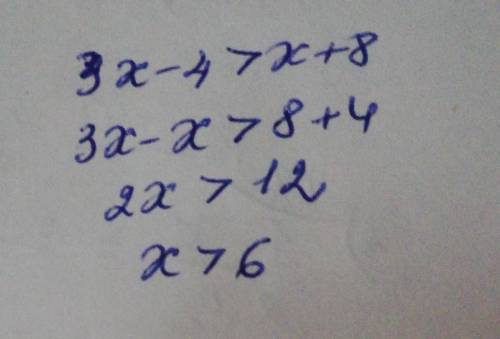 3x-4>x+8
3x-x>8+4
2x>12
x>6